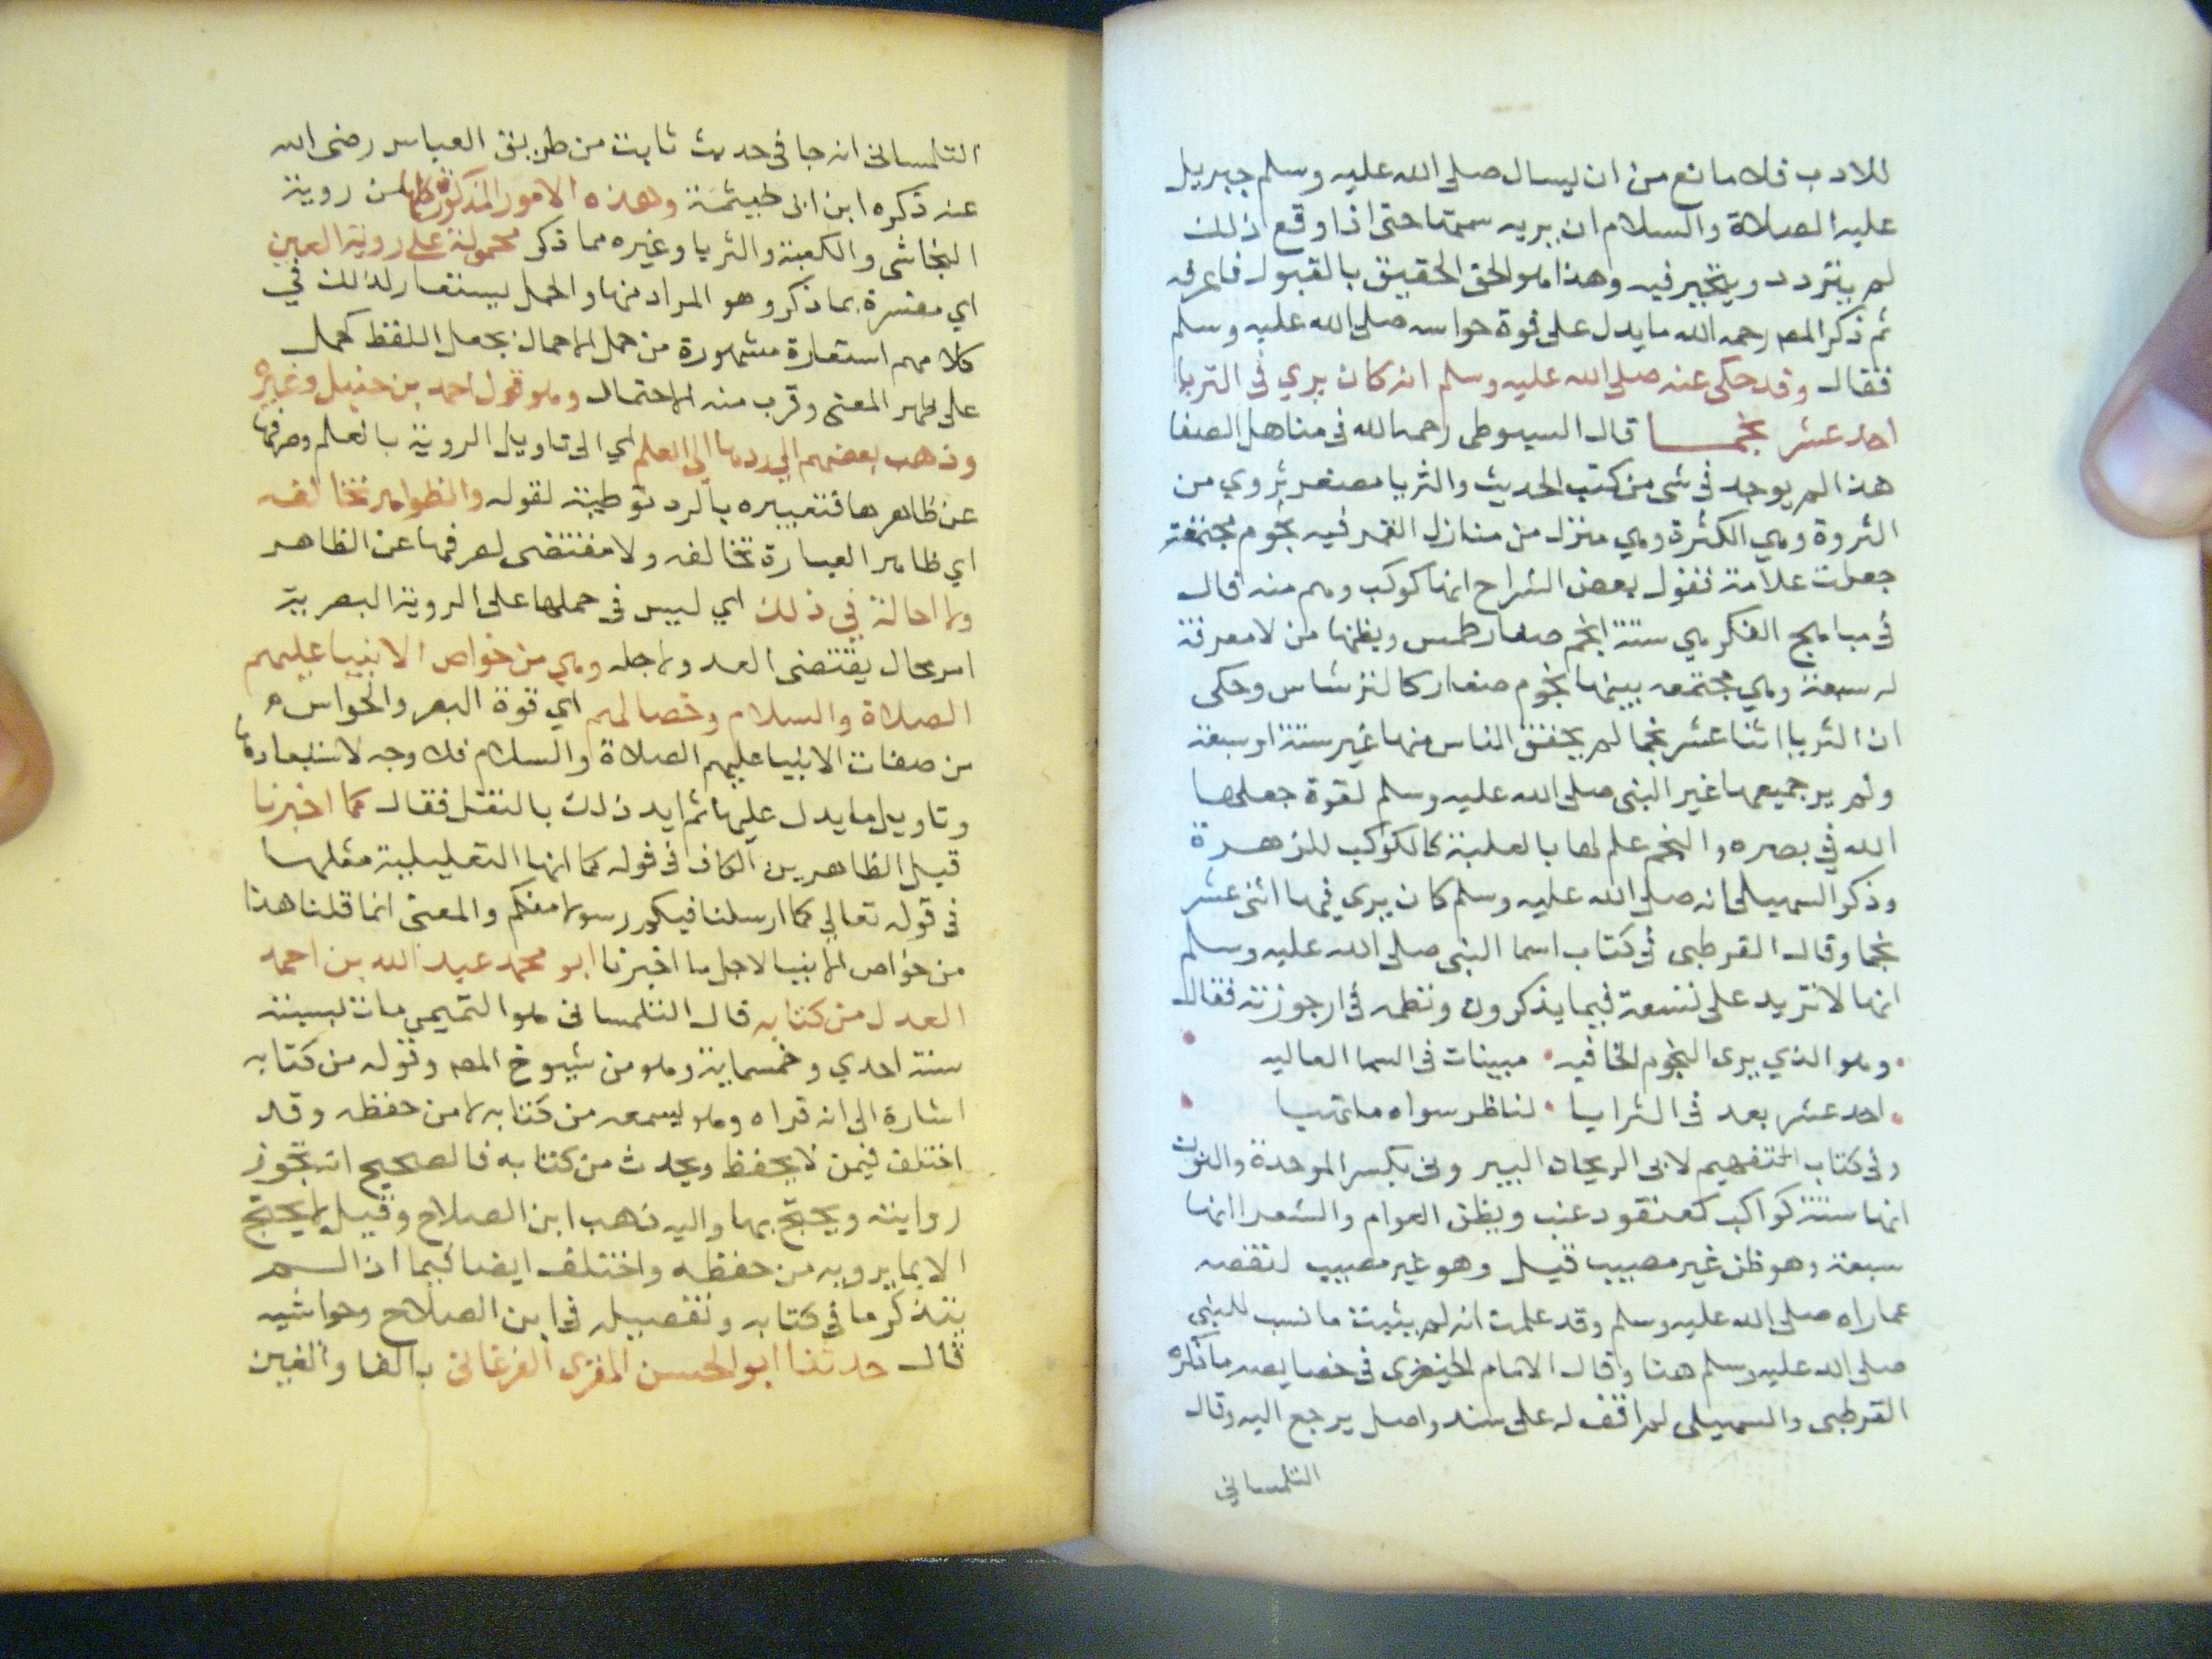 للادب فلا مانع من ان يسال صلى الله عليه وسلم جبريل
عليه الصلاة والسلام ان يريه سمتها حتى اذا وقع ذلك
لم يتردد ويتحير فيه وهذا هو الحق الحقيق بالقبول فاعرفه
ثم ذكر المص رحمه الله ما يدل على قوة حواسه صلى الله عليه وسلم
فقال وقد حكى عنه صلى الله عليه وسلم انه كان يري في الثريا
احد عشر نجما قال السيوطى رحمه الله فى مناهل الصفا
هذا لم يوجد في شى من كتب الحديث والثريا مصغر ثروي من
الثروة وهي الكثرة وهي منزل من منازل القمر فيه نجوم مجتمعة
جعلت علامة فقول بعض الشراح انها كوكب وهم منه قال
في مباهج الفكر هي ستة انجم صغار طمس ويظنها من لا معرفة
له سبعة وهي مجتمعه بينها نجوم صغار كالرشاش وحكى
ان الثريا اثنا عشر نجما لم يحقق الناس منها غير ستة او سبعة
ولم ير جميعها غير النبى صلى الله عليه وسلم لقوة جعلها
الله في بصره والنجم علم لها بالغلبة كالكوكب للزهرة
وذكر السهيلى انه صلى الله عليه وسلم كان يرى فيها اثنى عشر
نجما وقال القرطبى في كتاب اسما النبى صلى الله عليه وسلم
انها لا تزيد على تسعة فيما يذكرون ونظمه في ارجوزته فقال
وهو الذي يرى النجوم الخافيه • مبينات فى السما العاليه
احد عشر بعد فى الثرايا • لناظر سواه ما تهيا
وفي كتاب التفهيم لابى الريحان البيرونى بكسر الموحدة والنون
انها ستة كواكب كعنقود عنب ويظن العوام والشعرا انها
سبعة وهو ظن غير مصيب قيل وهو غير مصيب لنقصه
عما راه صلى الله عليه وسلم وقد علمت انه لم يثبت ما نسب للنبي
صلى الله عليه وسلم هنا وقال الامام الخيضرى فى خصايصه ما ذكره
القرطبى والسهيلى لم اقف له على سند واصل يرجع اليه وقال
التلمساني
التلمسانى انه جا فى حديث ثابت من طريق العباس رضى الله
عنه ذكره ابن ابى خيثمة وهذه الامور المذكورة كلها من روية
النجاشى والكعبة والثريا وغيره مما ذكر محمولة على روية العين
اي مفسرة بما ذكر وهو المراد منها والحمل يستعار لذلك في
كلامهم استعارة مشهورة من حمل الاحمال بجعل اللفظ كحمل
على ظهر المعنى وقرب منه الاحتمال وهو قول احمد بن حنبل وغيره
وذهب بعضهم الي ردها الي العلم اي الى تاويل الروية بالعلم وصرفها
عن ظاهرها فتعبيره بالرد توطية لقوله والظواهر تخالفه
اي ظاهر العبارة تخالفه ولا مقتضى لصرفها عن الظاهر
ولا احالة في ذلك اي ليس فى حملها على الروية البصرية
امر محال يقتضى العدول لاجله وهي من خواص الانبيا عليهم
الصلاة والسلام وخصالهم اي قوة البصر والحواس
من صفات الانبيا عليهم الصلاة والسلام فلا وجه لاستبعادها
وتاويل ما يدل عليها ثم ايد ذلك بالنقل فقال كما اخبرنا
قيل الظاهر ان الكاف فى قوله كما انها التعليلية مثلها
فى قوله تعالي كما ارسلنا فيكم رسولا منكم والمعنى انما قلنا هذا
من خواص الانبيا لاجل ما اخبرنا ابو محمد عبد الله بن احمد
العدل من كتابه قال التلمسانى هو التميمى مات بسبتة
سنة احدي وخمسماية وهو من شيوخ المص وقوله من كتابه
اشارة الى انه قراه وهو يسمعه من كتابه لا من حفظه وقد
اختلف فيمن لا يحفظ ويحدث من كتابه فالصحيح انه تجوز
روايته ويحتج بها واليه ذهب ابن الصلاح وقيل لا يحتج
الا بما يرويه من حفظه واختلف ايضا فيما اذا لم
يتذكر ما في كتابه وتفصيله فى ابن الصلاح وحواشيه
قال حدثنا ابو الحسن المقرى الفرغانى بالفا والغين